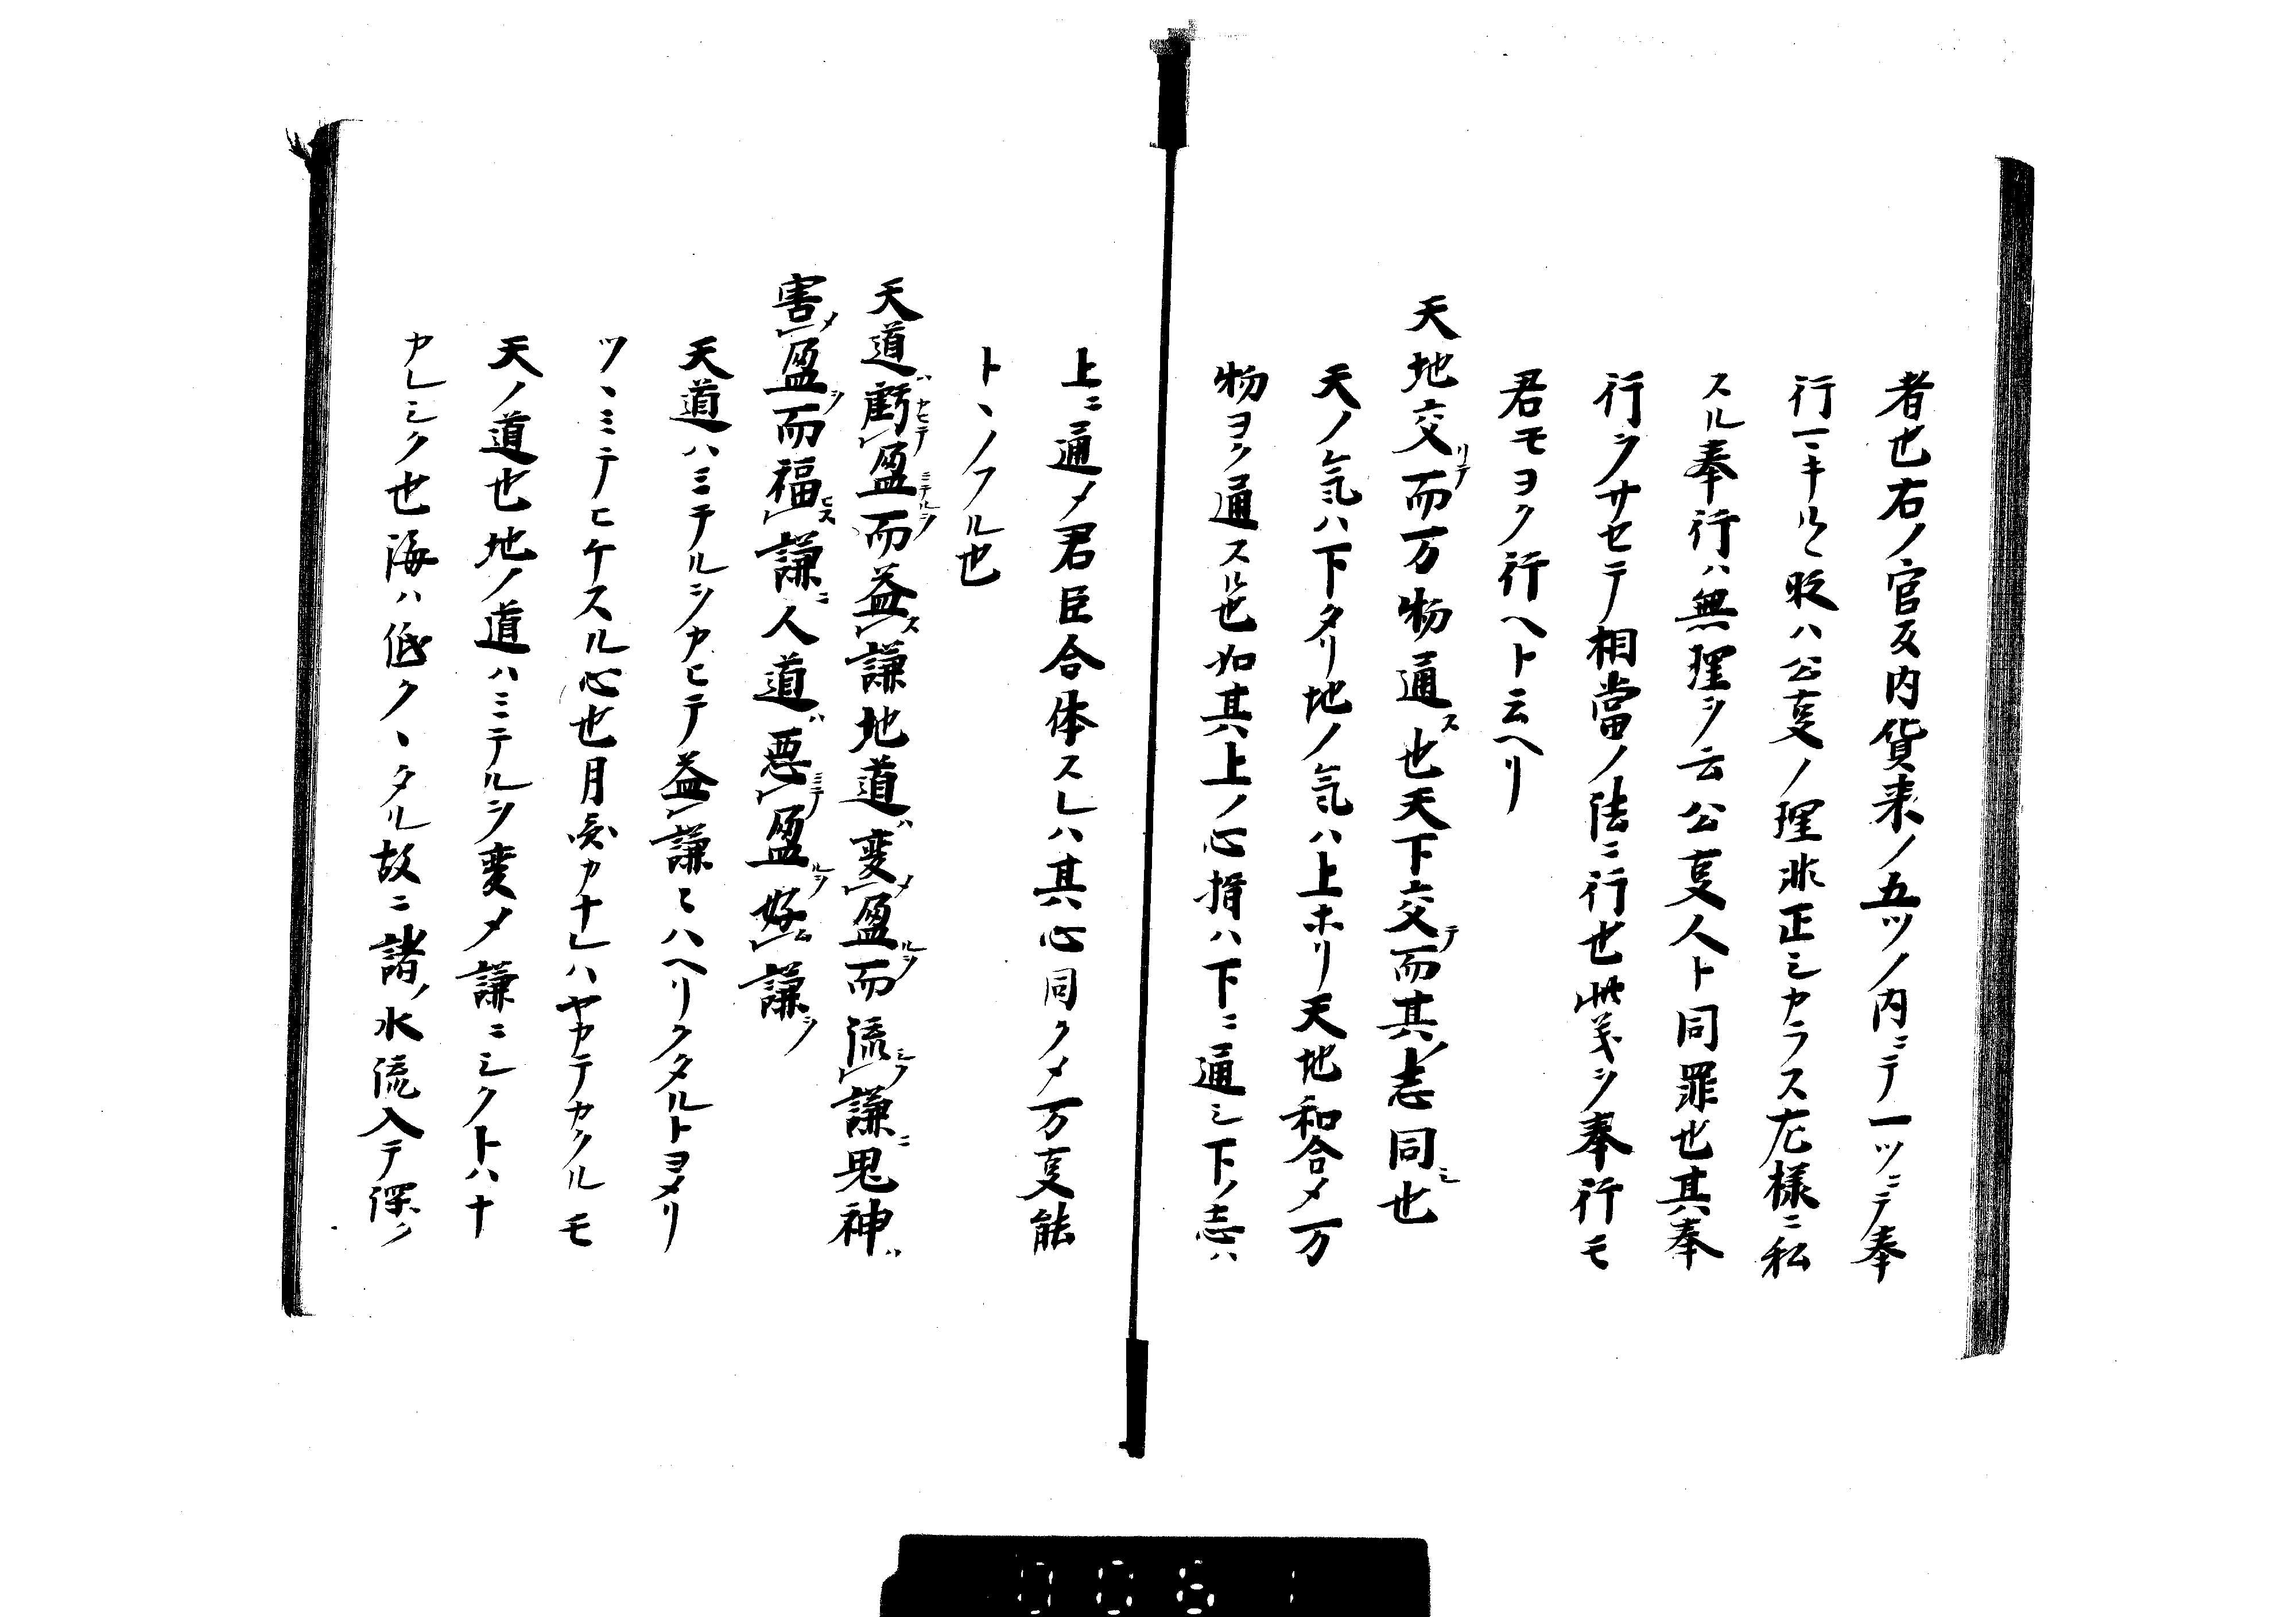 者也右ノ官反内貨来ノ五ツノ内ニテ一ツニテ奉
行一ニキル〻眨ハ公㕝ノ理非正シカラス左様ニ私
スル奉行ハ無理ヲ云公㕝人ト同罪也其奉
行ヲサセテ相當ノ法ニ行也此義ヲ奉行モ
君モヨク行ヘト云ヘリ
天地交リテ而万物通ス也天下交テ而其志同シ也
天ノ気ハ下タリ地ノ気ハ上ホリ天地和合メ万
物ヨク通スル也如其上ノ心揹ハ下ニ通シ下ノ志ハ
上ニ通メ君臣合体スレハ其心同クメ万㕝能
トヽノフル也
天道ハ虧カヒテ盈ミテルヲ而益ス謙地道ハ変メ盈ルヲ而流シク謙ニ鬼神ハ
害メ盈ヲ而福ヒス謙ニ人道ハ悪ミテ盈ルヲ好ム謙ヲ
天道ハミテルヲカヒテ益謙〻ハヘリクタルトヨメリ
ツヽミテヒケスル心也月盈カナレハヤカテカクルモ
天ノ道也地ノ道ハミテルヲ変メ謙ニシクトハナ
カレシク也海ハ低クヽタル故ニ諸ノ水流入テ深ク